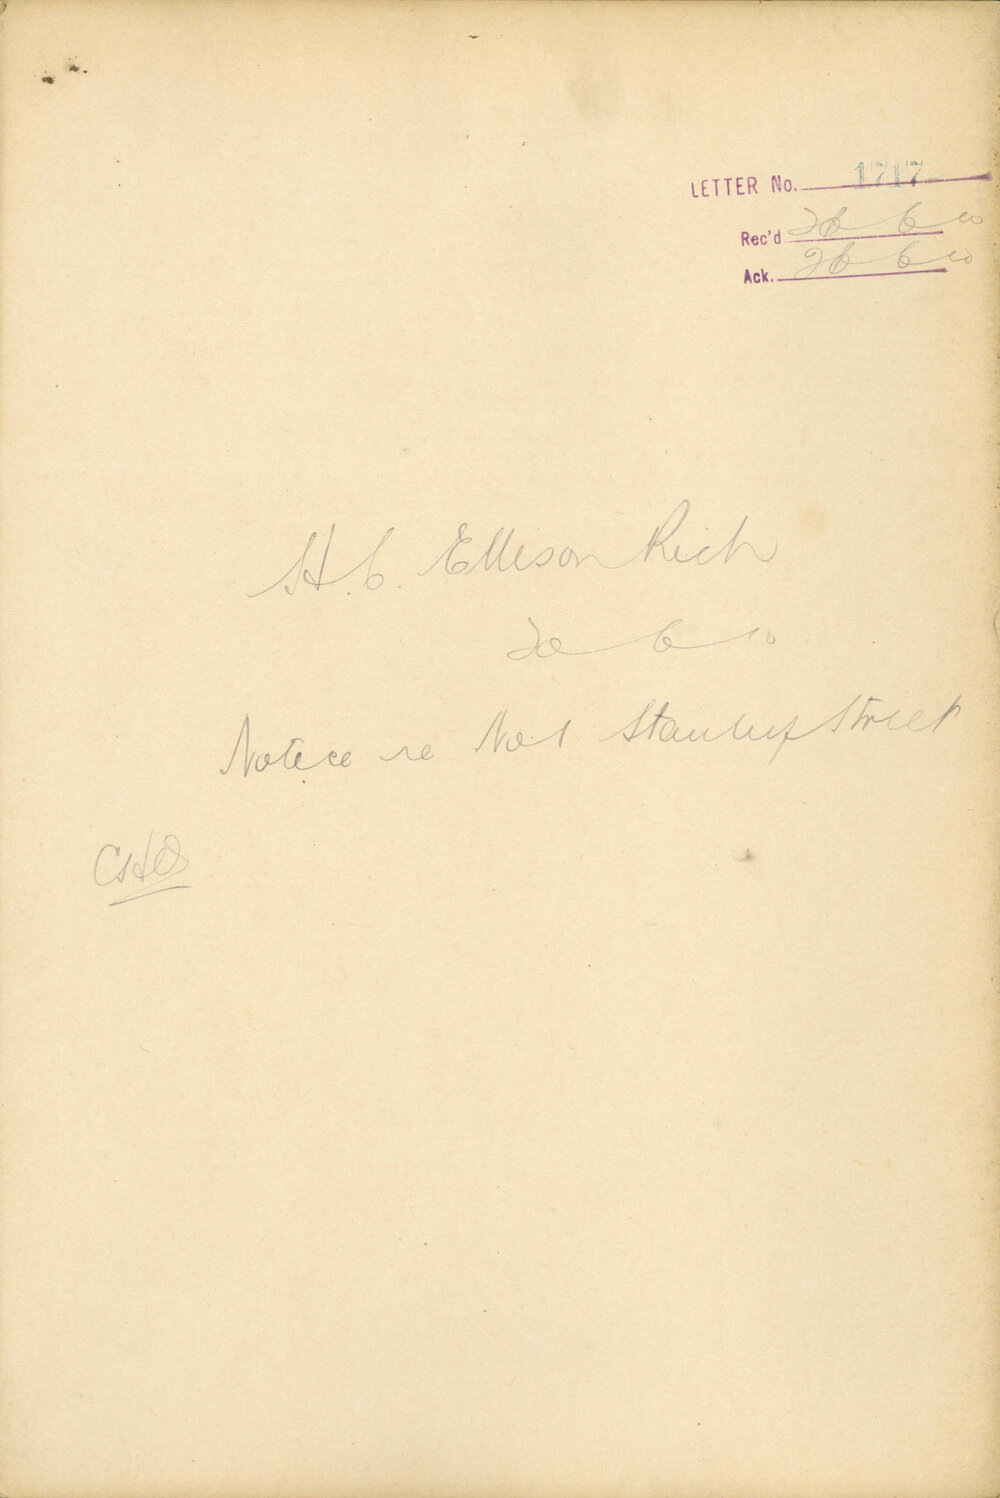 LETTER No. 1717
Rec'd 26 6 10
Ack. 26 6 10
H. C. Ellison Rich
6 10
Notice re No 1 Stanley Street